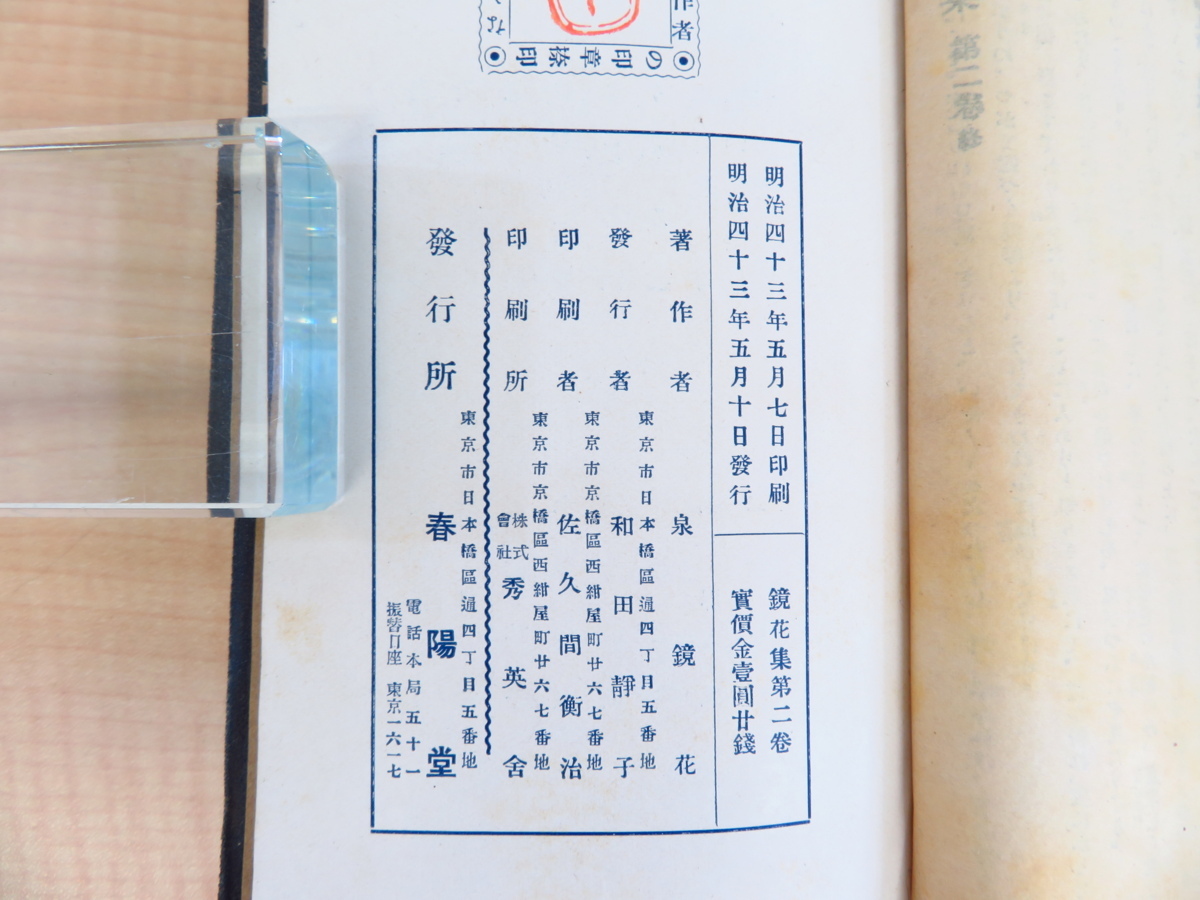 明治四十三年五月七日印刷
明治四十三年五月十日發行
鏡花集第二卷
實價金壹圓廿錢
著作者 泉鏡花
東京市日本橋區通四丁目五番地
發行者 和田靜子
東京市京橋區西紺屋町廿六七番地
印刷者 佐久間衡治
東京市京橋區西紺屋町廿六七番地
印刷所 株式會社 秀英舍
東京市日本橋區通四丁目五番地
發行所 春陽堂
電話本局五十一
振替口座 東京一六一七
作者
の印章捺印
な
第二卷